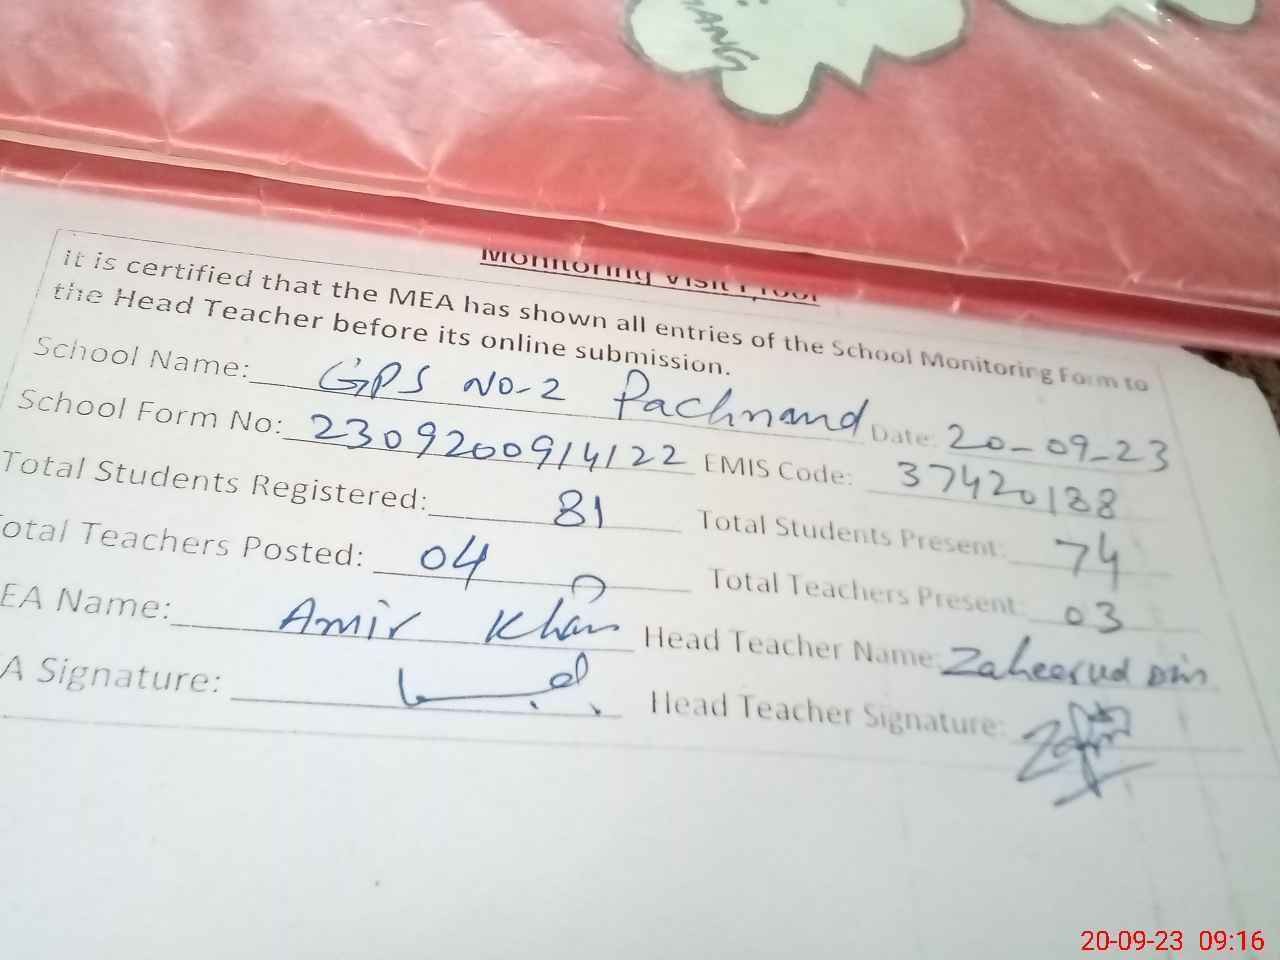 HANG
Monitoring Visit Proof
it is certified that the MEA has shown all entries of the School Monitoring Form to
the Head Teacher before its online submission.
School Name: GPS NO-2 Pachnand Date: 20-09-23
School Form No: 2309200914122 EMIS Code: 37420188
Total Students Registered: 81 Total Students Present: 74
otal Teachers Posted: 04 Total Teachers Present: 03
EA Name: Amir Khan Head Teacher Name: Zaheerud Din
A Signature: Head Teacher Signature:
20-09-23 09:16